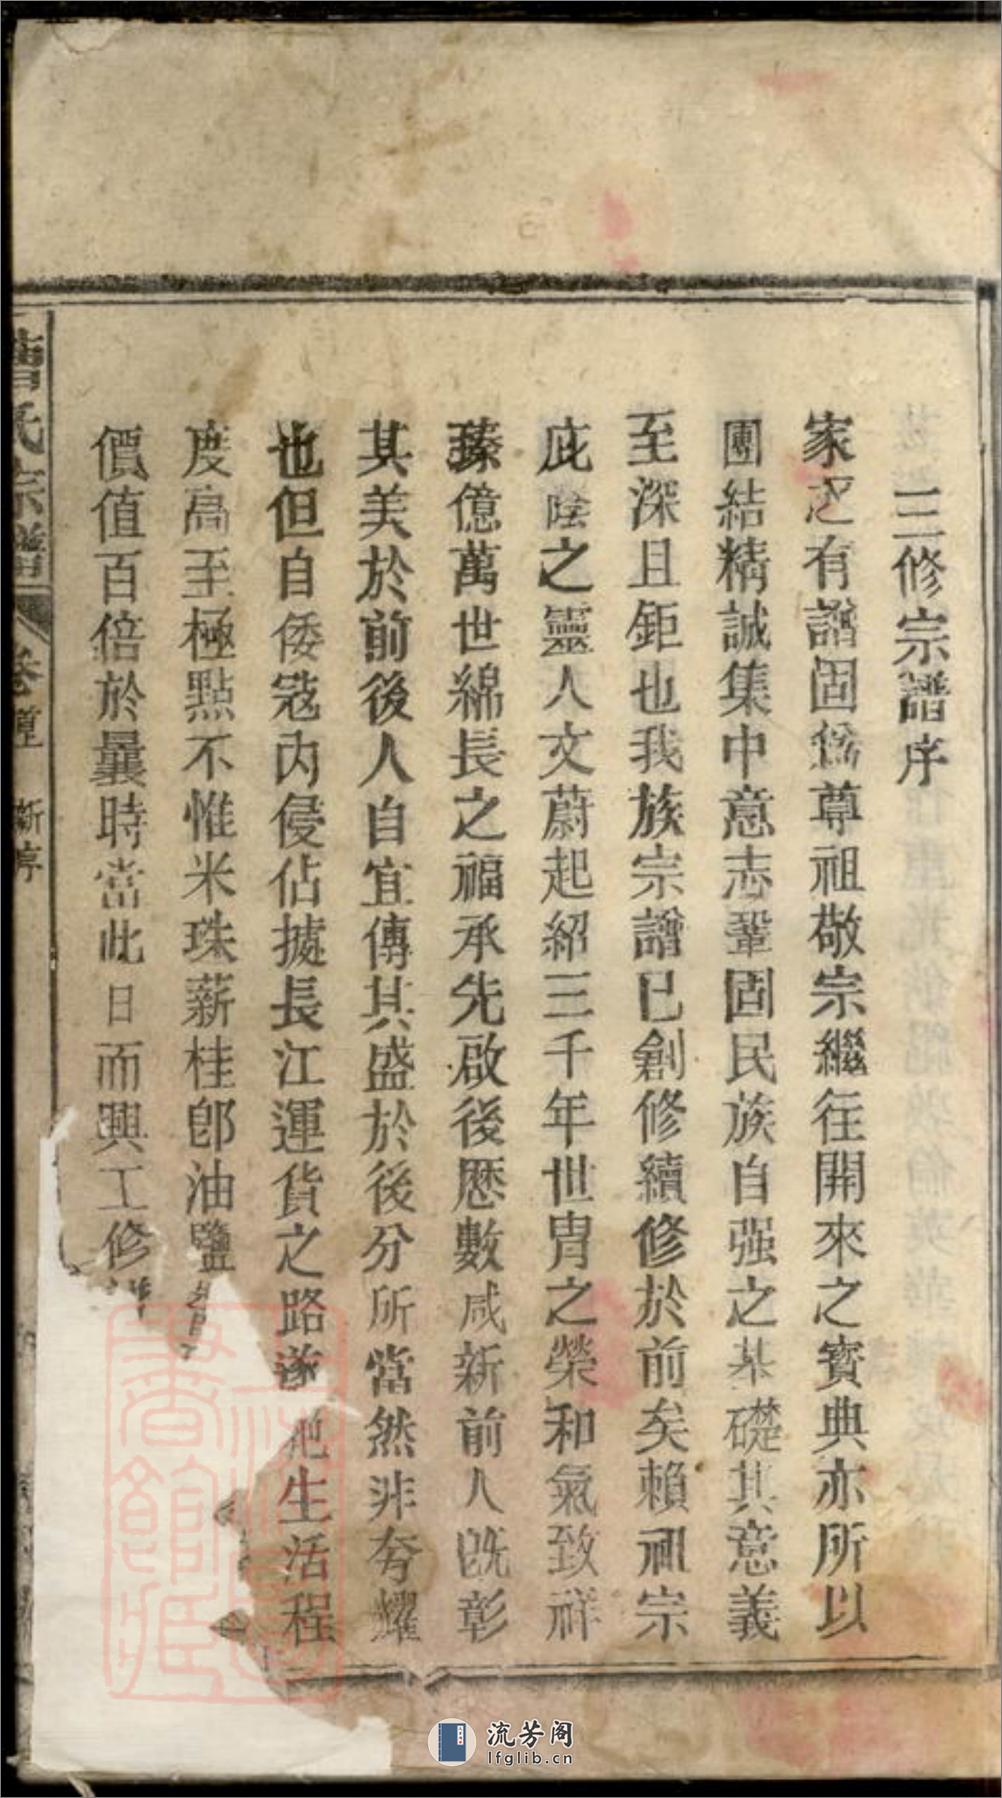 三修宗譜序
家之有譜固爲尊祖敬宗繼往開來之寳典亦所以
團結精誠集中意志鞏固民族自强之基礎其意義
至深且鉅也我族宗譜已創修續修於前矣賴祖宗
庇蔭之靈人文蔚起紹三千年世胄之榮和氣致祥
臻億萬世綿長之福承先啟後歷數咸新前人既彰
其美於前後人自宜傳其盛於後分所當然非夸耀
也但自倭寇內侵佔據長江運貨之路遂 生活程
度高至極點不惟米珠薪桂卽油鹽
價值百倍於曩時當此日而興工修譜
曹氏宗譜 卷 新序
流芳阁
lfglib.cn